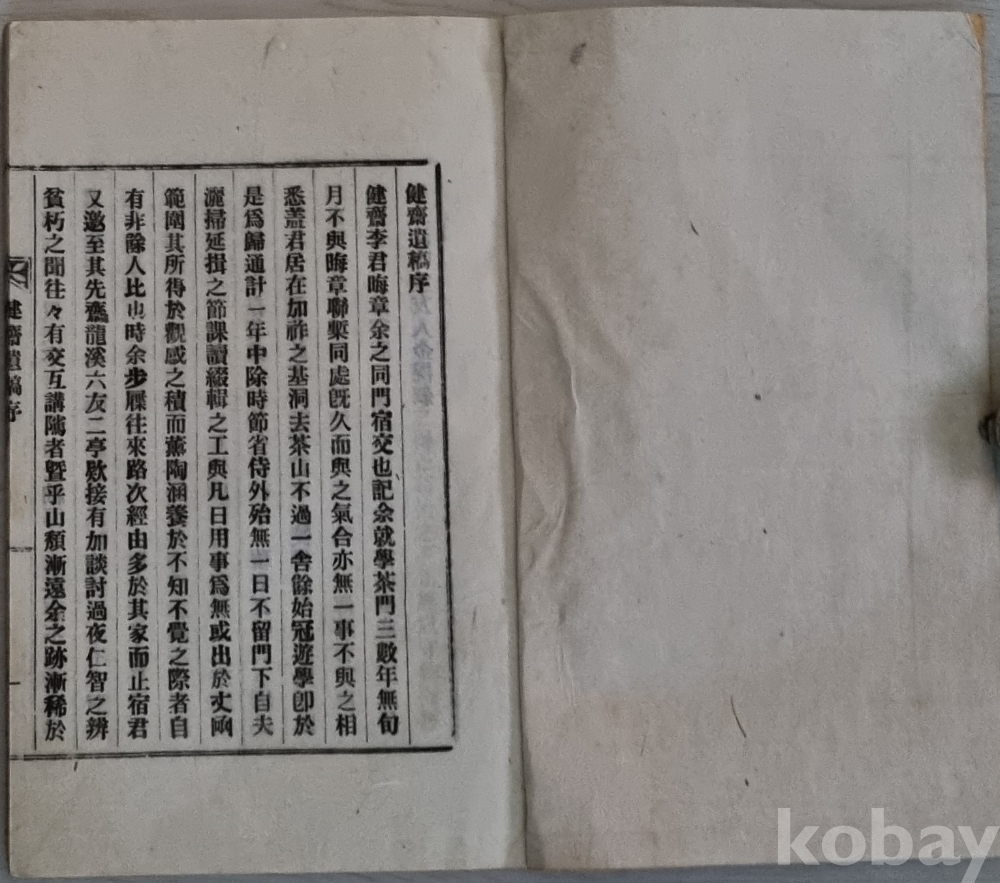 健齋遺稿序
健齋李君晦章余之同門宿交也記余就學茶門三數年無旬
月不與晦章聯槧同處旣久而與之氣合亦無一事不與之相
悉盖君居在加祚之基洞去茶山不過一舍餘始冠遊學卽於
是爲歸通計一年中除時節省侍外殆無一日不留門下自夫
灑掃延揖之節課讀綴輯之工與凡日用事爲無或出於丈函
範圍其所得於觀感之積而薰陶涵養於不知不覺之際者自
有非餘人比也時余步屧往來路次經由多於其家而止宿君
又邀至其先齋龍溪六友二亭欵接有加談討過夜仁智之辨
貧朽之聞往々有交互講隲者曁乎山頹漸遠余之跡漸稀於
健齋遺稿序
kobay